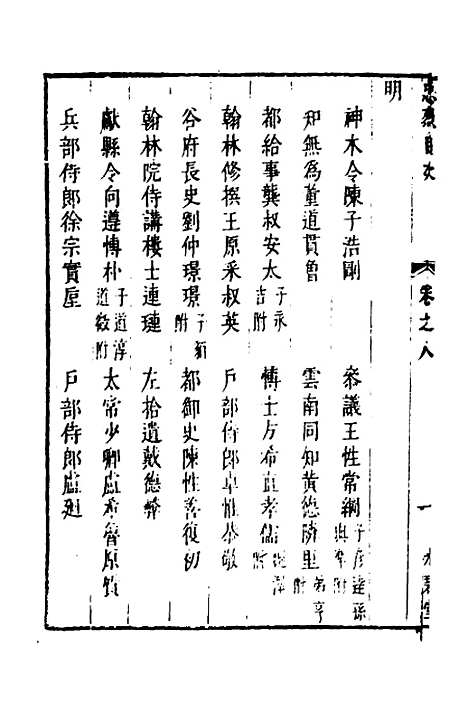 明
神木令陳子浩剛
參議王性常綱 子彥達孫
附
知無為董道貫曾
雲南同知黃德隣里 弟亨
附
都給事龔叔安太 子永
吉附
博士方希直孝儒
附
翰林修撰王原采叔英
戶部侍郎卓惟恭敬
谷府長史劉仲璟璟 子
附
都御史陳性善復初
翰林院侍講樓士連璉
左拾遺戴德彝
獻縣令向遵博朴 子道淳
道敍附
太常少卿盧希魯原質
兵部侍郎徐宗實垕
戶部侍郎盧廻
目次
卷之八
一